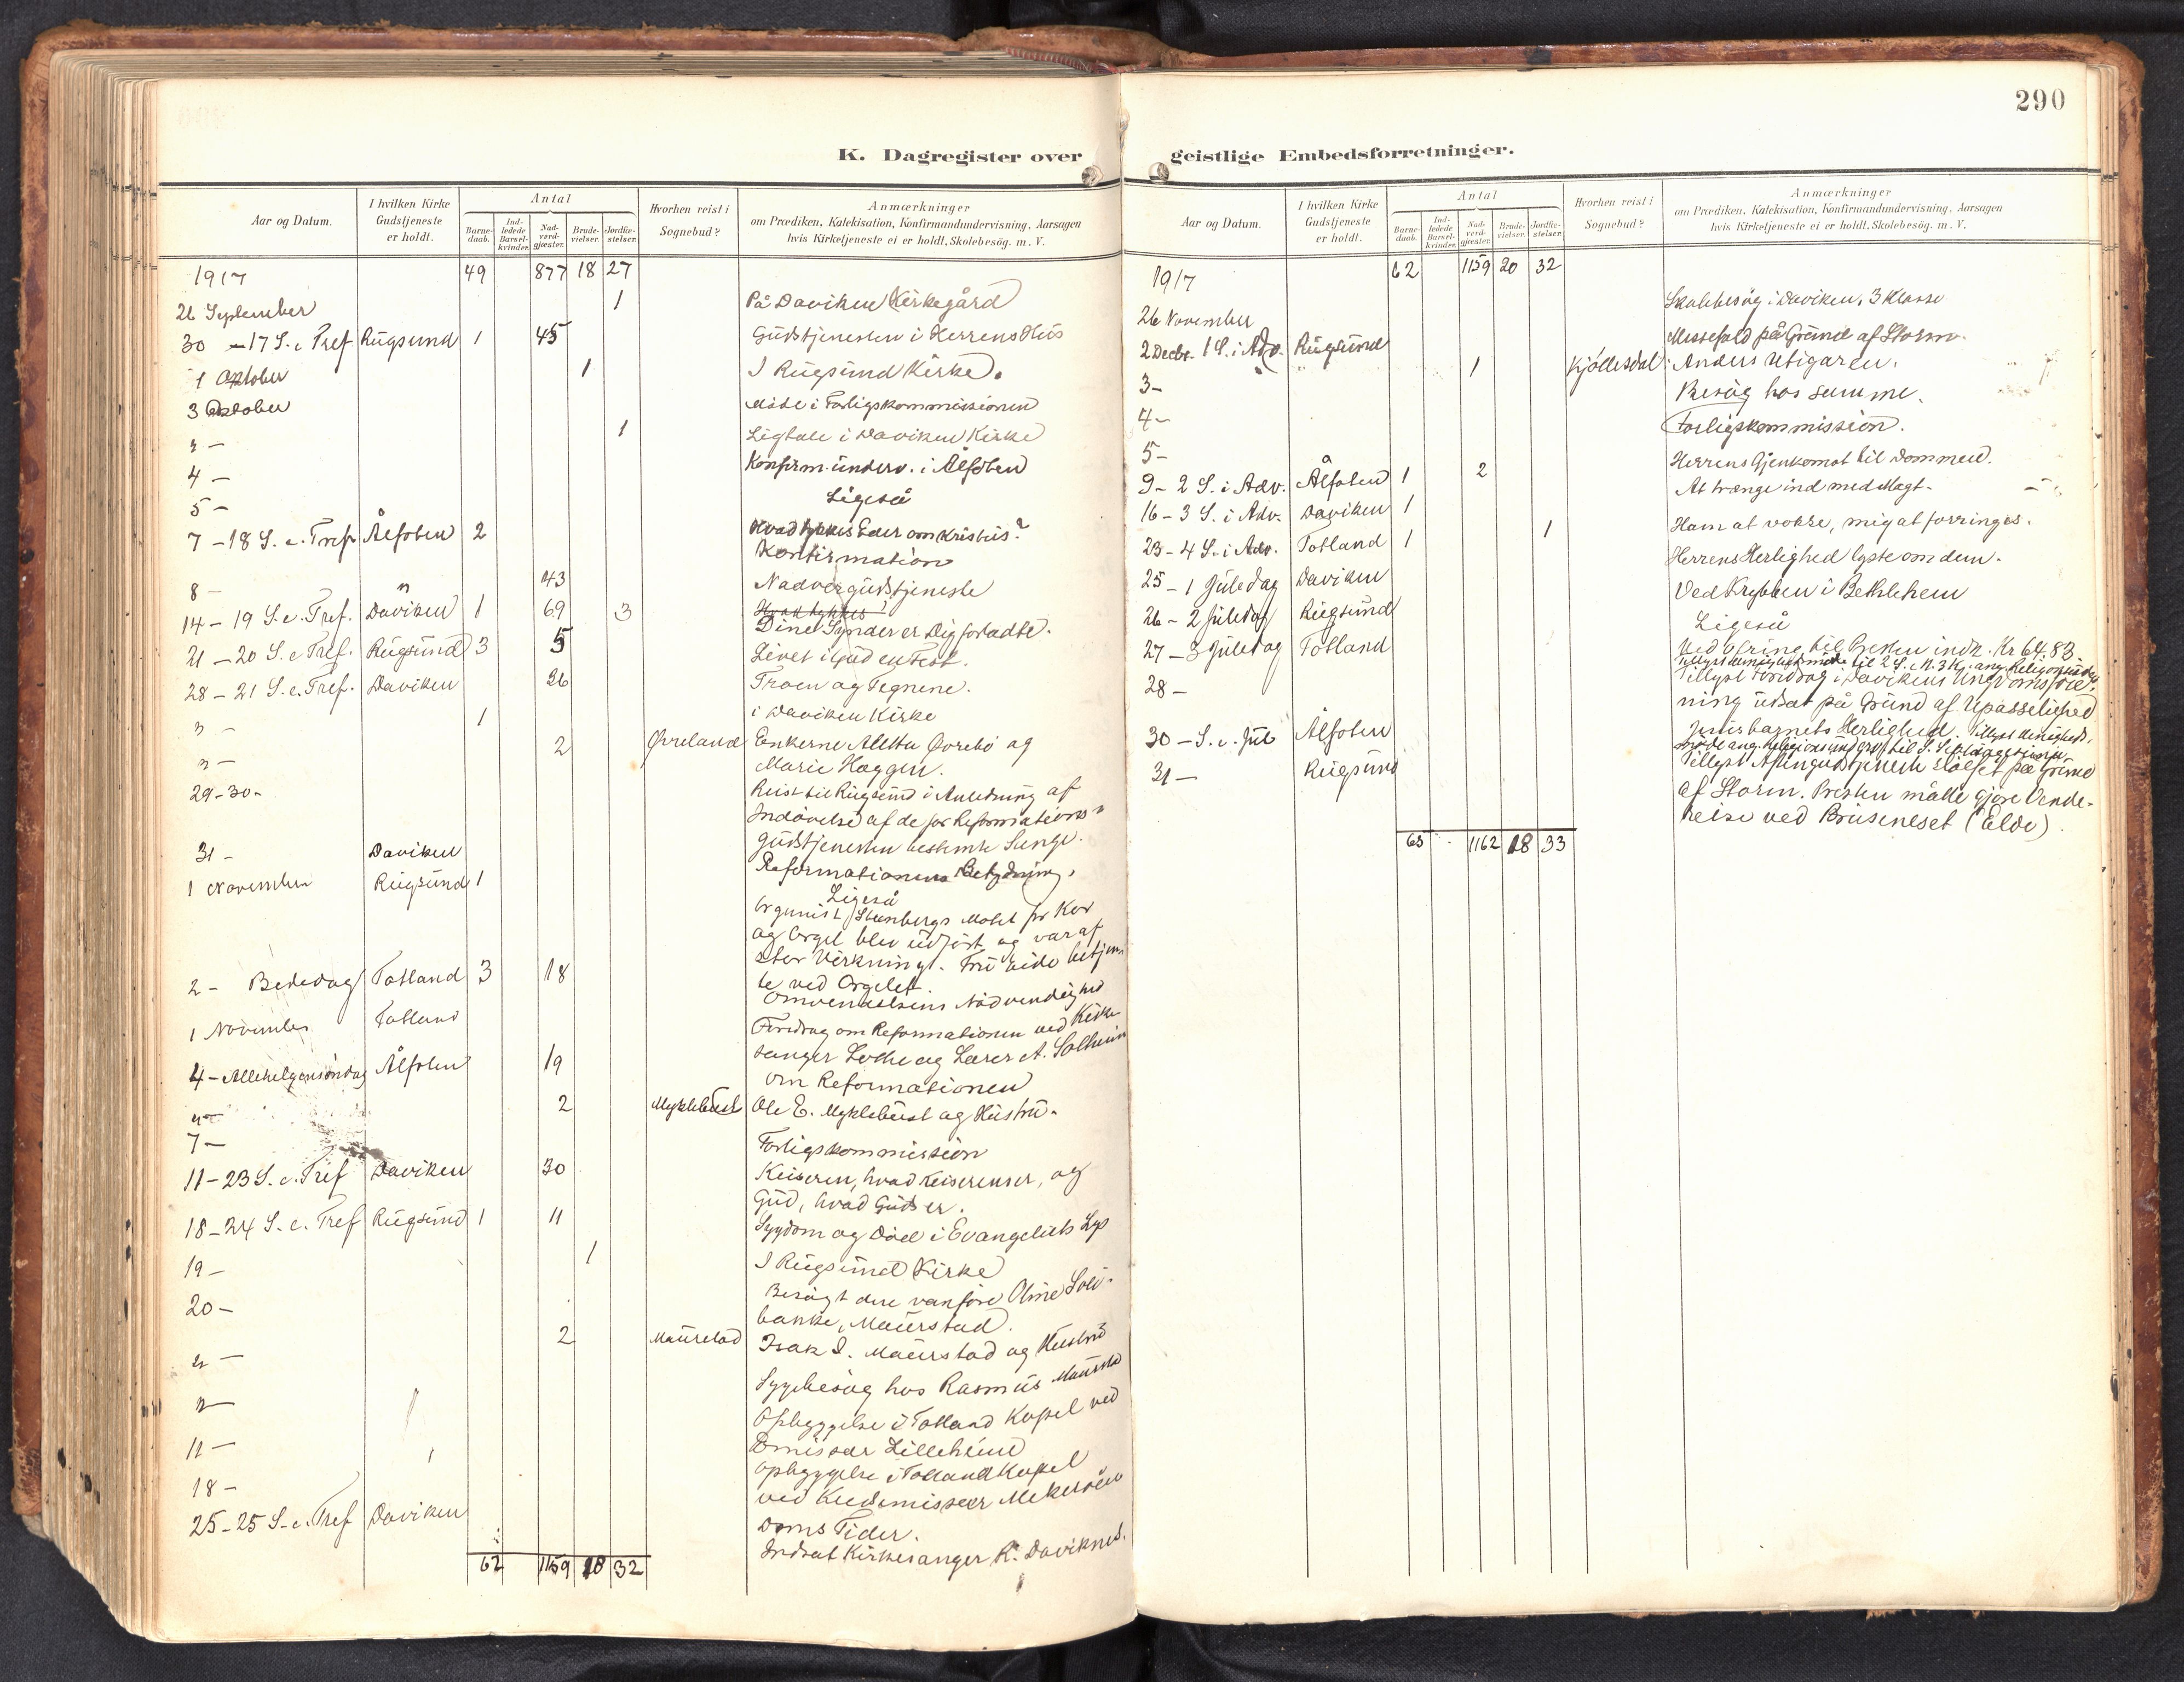 290
K. Dagregister over geistlige Embedsforretninger.
Aar og Datum.
I hvilken Kirke Gudstjeneste er holdt.
Antal
Barnedaab.
Indledede Barselkvinder.
Nadverdgjæster.
Brudevielser.
Jordfæstelser.
Hvorhen reist i Sognebud?
Anmærkninger
om Prædiken, Katekisation, Konfirmandundervisning, Aarsagen
hvis Kirketjeneste ei er holdt, Skolebesög. m. V.
1917 49 877 18 27
26 September 1 På Daviken Kirkegård
30 - 17 S. e Tref Rugsund 1 45 Gudstjenesten i Herrens Hus
1 Oktober 1 I Rugsund Kirke.
3 Oktober Möde i Forligskommissionen
" - 1 Ligtale i Daviken Kirke
4 - Konfirm. underv. i Ålfoten
5 - Ligeså
7 - 18 S. e. Tref Ålfoten 2 Hvad tykkes Eder om Kristus?
Konfirmation
8 - " 43 Nadvergudstjeneste
14 - 19 S. e. Tref. Daviken 1 69 3 Hvad tykkes
Dine Synder er Dig forladte.
21 - 20 S. e Tref. Rugsund 3 5 Livet i Gud en Fest.
28 - 21 S. e. Tref. Daviken 26 Troen og Tegnene.
" - 1 i Daviken Kirke
" - 2 Övreland Enkerne Aletta Övrebö og
Marie Haggen.
29-30- Reist til Rugsund i Anledning af
Indövelse af de for Reformations=
gudstjenesten bestemte Sange.
31 - Daviken Reformationens Betydning.
1 November Rugsund 1 Ligeså
Organist Steenbergs Motet for Kor
og Orgel blev udfört og var af
stor Virkning. Fru Eide betjen-
te ved Orgelet.
2 - Bededag Totland 3 18 Omvendelsens Nödvendighed
1 November Totland Foredrag om Reformationen ved Kirke
sanger Lothe og Lærer A. Solheim
4 - Allehelgensöndag Ålfoten 19 Om Reformationen
" - 2 Myklebust Ole E. Myklebust og Hustru.
7 - Forligskommission
11 - 23 S. e. Tref Daviken 30 Keiseren, hvad Keiserens er, og
Gud, hvad Guds er.
18 - 24 S. e. Tref Rugsund 1 11 Sygdom og Död i Evangeliets Lys
19 - 1 I Rugsund Kirke
20 - Besögt den vanföre Oline
banke, Maurstad.
" - 2 Maurstad Isak I. Maurstad og Hustru
" - Sygebesög hos Rasmus Maurstad
11 - Opbyggelse i Totland Kapel ved
Emissær Lilleheim
18 - Opbyggelse i Totland Kapel
ved
25 - 25 S. e. Tref Daviken Doms Tider.
Indsat Kirkesanger R. Daviknes.
62 1159 18 32
Aar og Datum.
I hvilken Kirke Gudstjeneste er holdt.
Antal
Barnedaab.
Indledede Barselkvinder.
Nadverdgjæster.
Brudevielser.
Jordfæstelser.
Hvorhen reist i Sognebud?
Anmærkninger
om Prædiken, Katekisation, Konfirmandundervisning, Aarsagen
hvis Kirketjeneste ei er holdt, Skolebesög. m. V.
1917 62 1159 20 32
26 November Skolebesög i Daviken, 3 Klasse
2 Decbr. 1 S. i Adv. Rugsund Messefald på Grund af Storm.
3 - 1 Kjöllesdal Anders Utigaren.
4 - Besög hos samme.
5 - Forligskommission.
9 - 2 S. i Adv. Ålfoten 1 2 Herrens Gjenkomst til Dommen.
16 - 3 S. i Adv. Daviken 1 At trænge ind med Magt.
23 - 4 S. i Adv. Totland 1 1 Ham at vokse, mig at forringes.
25 - 1 Juledag Daviken Herrens Herlighed lyste om dem.
26 - 2 Juledag Rugsund Ved Krybben i Bethlehem
27 - 3 Juledag Totland Ligeså
Ved Ofring til indk. Kr 64.83.
28 - Tillyst Foredrag i Davikens Ungdomsfore-
ning udsat på Grund af Upasselighed
30 - S. e. Jul Ålfoten Jesusbarnets Herlighed. Tillyst Menigheds-
31 - Rugsund Tillyst Aftengudstjeneste på Grund
af Storm. Presten måtte gjöre Vende-
reise ved Bruseneset (Elde).
65 1162 18 33